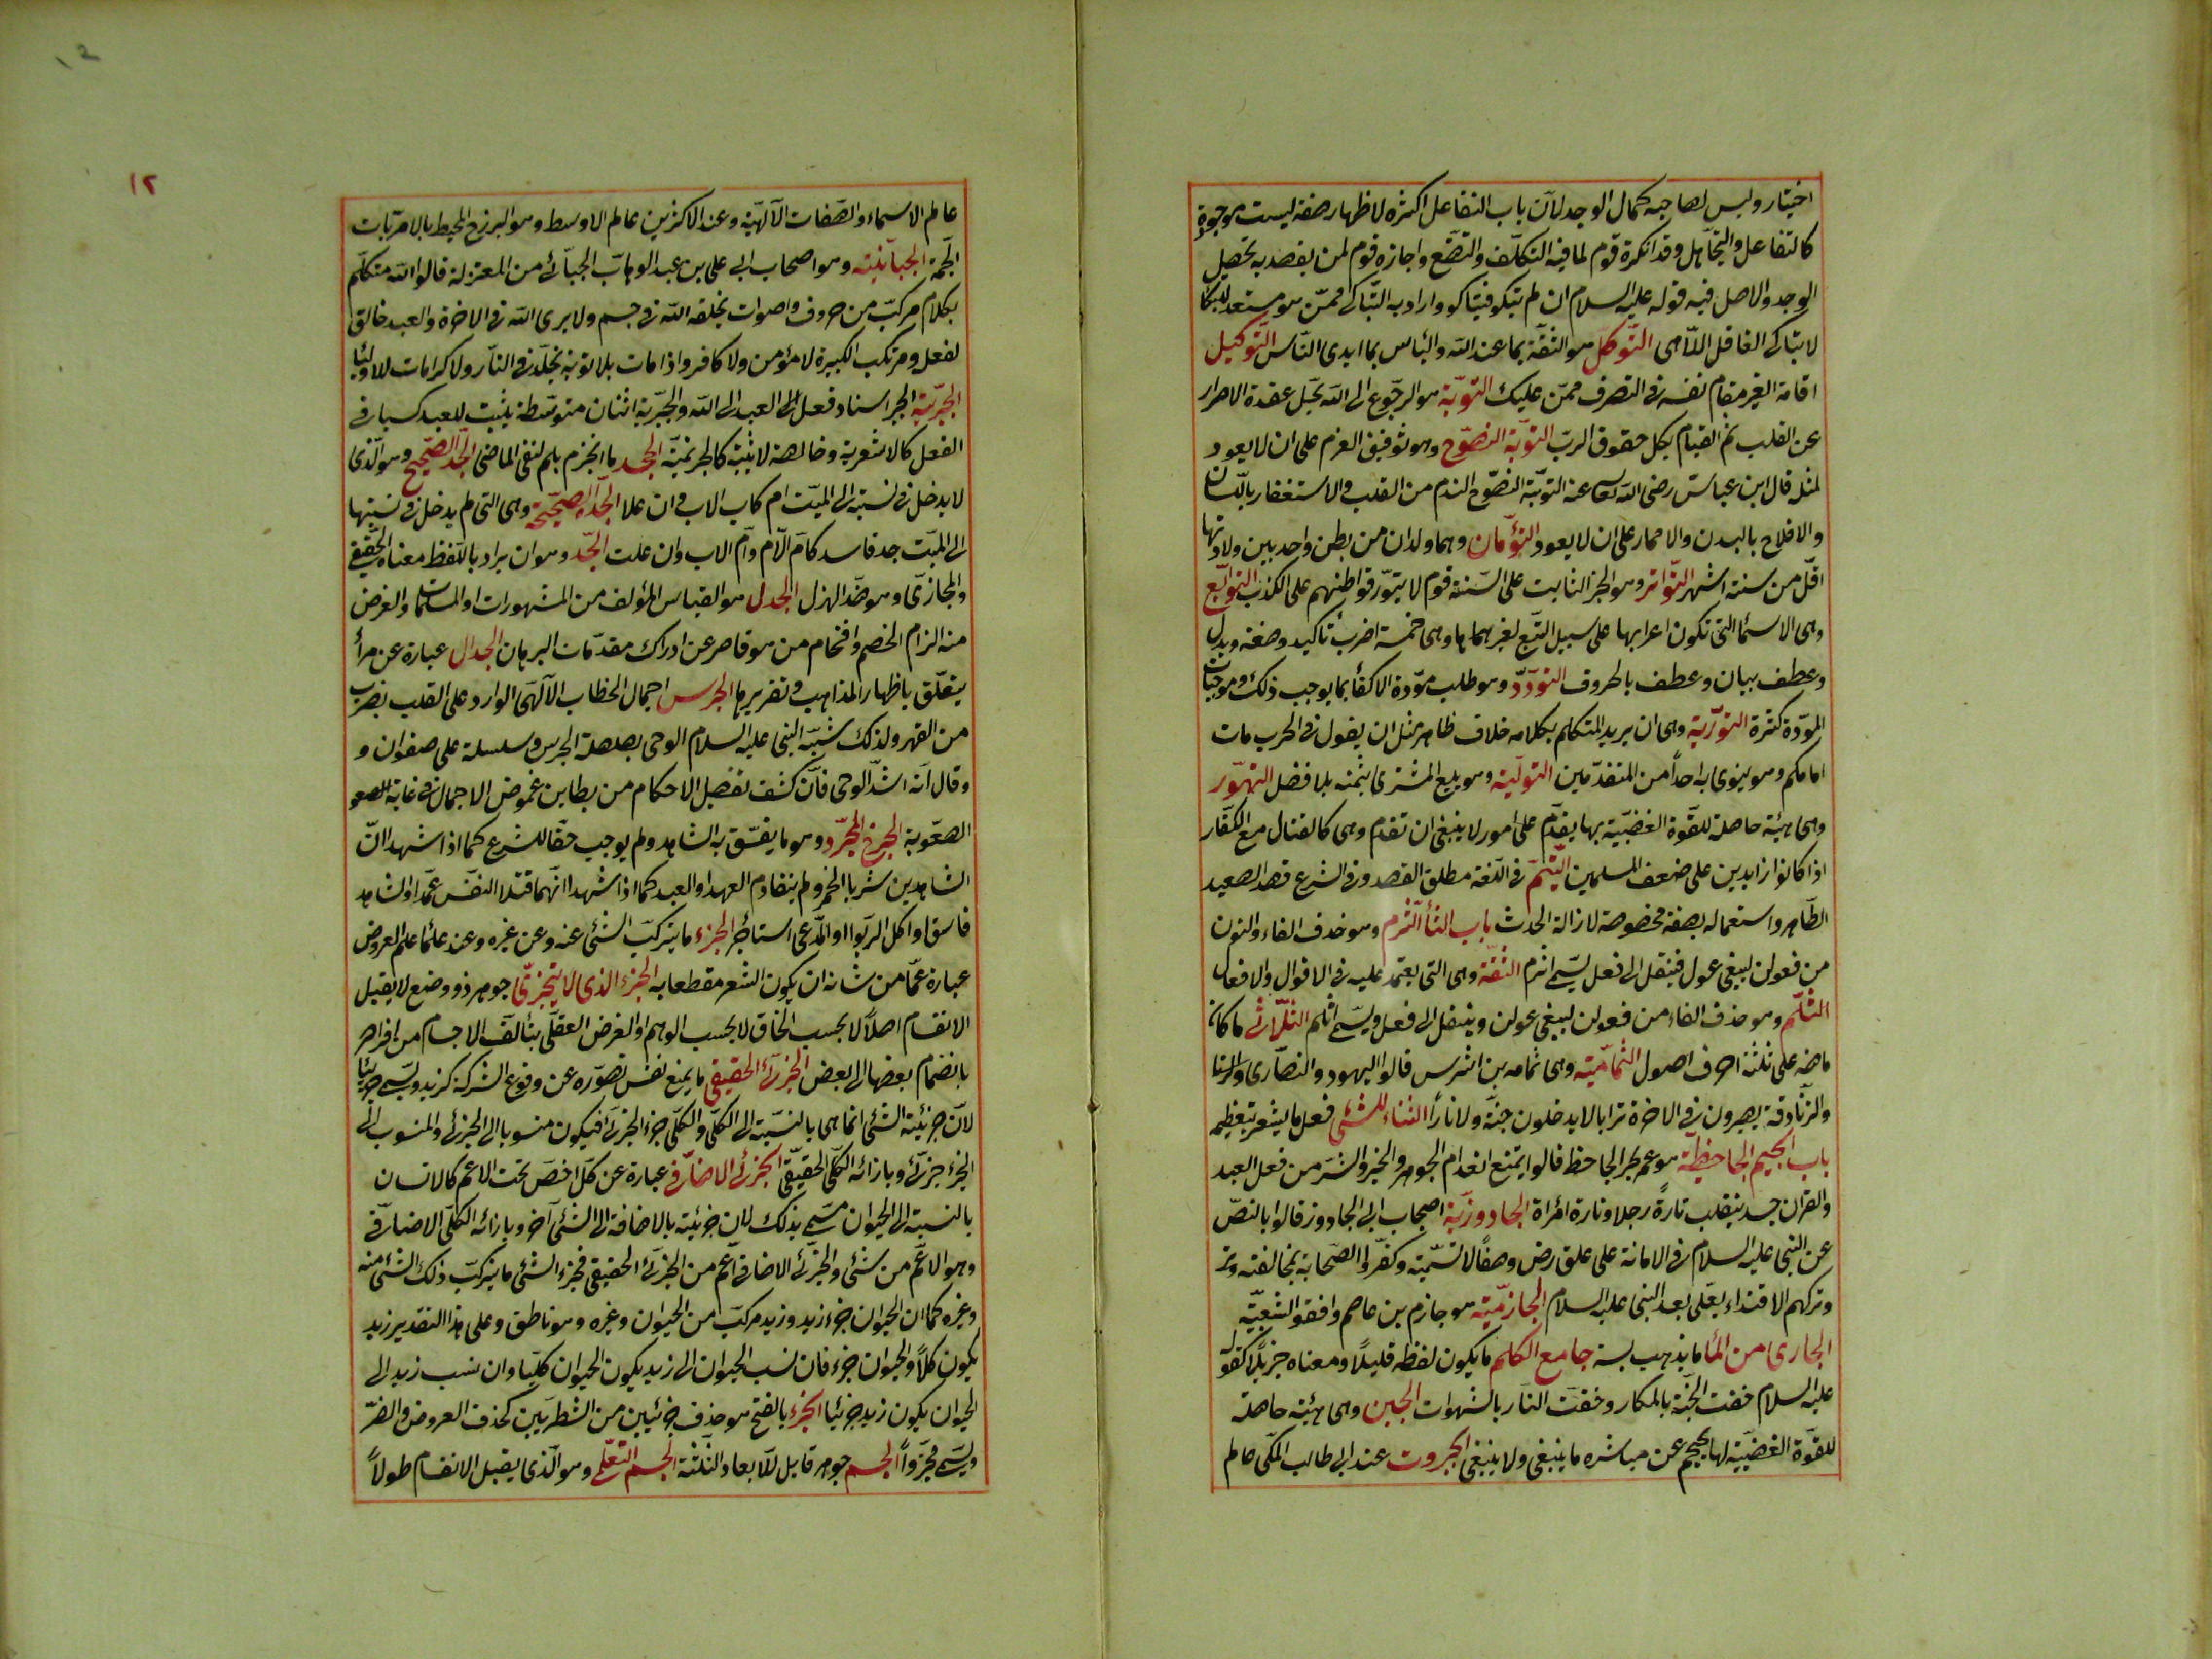 اختيار وليس لصاحبه كمال الوجد لان باب التفاعل اكثره لاظهار صفة ليست موجودة
كالتغافل والتجاهل وقد انكره قوم لما فيه التكلف والتصنع واجازه قوم لمن يقصد به تحصيل
الوجد والاصل فيه قوله عليه السلام ان لم تبكو فتباكو واراد به التباكى ممن هو مستعد للبكا
لا تباكى الغافل اللاهى التوكل هو الثقة بما عند الله والياس بما ايدى الناس التوكيل
اقامة الغير مقام نفسه فى التصرف ممن عليك التوبة هو الرجوع الى الله بحل عقدة الاصرار
عن القلب ثم القيام بكل حقوق الرب التوبة النصوح وهو توفيق العزم على ان لا يعود
لمثله قال ابن عباس رضى الله تعالى عنه التوبة النصوح الندم من القلب والاستغفار باللسان
والاقلاع بالبدن والاضمار على ان لا يعود التوأمان وهما ولدان من بطن واحد بين ولادتهما
اقل من ستة اشهر التواتر وهو الخبر الثابت على السنة قوم لا يتصور تواطئهم على الكذب التوابع
وهى الاسماء التى تكون اعرابها على سبيل التبع لغيرها وهى خمسة اضرب تأكيد وصفة وبدل
وعطف بيان وعطف بالحروف التودد وهو طلب مودة الاكفاء بما يوجب ذلك وموجبات
المودة كثرة التورية وهى ان يريد المتكلم بكلامه خلاف ظاهره مثل ان يقول فى الحرب مات
امامكم وهو ينوى به احداً من المتقدمين التولية وهو بيع المشترى بثمنه بلا فضل التهور
وهى هيئة حاصلة للقوة الغضبية بها يقدم على امور لا ينبغى ان تقدم وهى كالقتال مع الكفار
اذا كانوا زايدين على ضعف المسلمين التيمم فى اللغة مطلق القصد وفى الشرع قصد الصعيد
الطاهر واستعماله بصفة مخصوصة لازالة الحدث باب الثا الثرم وهو حذف الفاء والنون
من فعولن ليبقى عول فينقل الى فعل يسمى اثرم الثقة وهى التى يعتمد عليه فى الاقوال والافعال
الثلم وهو حذف الفاء من فعولن ليبقى عولن وينقل الى فعل ويسمى اثلم الثلاثى ما كان
ماضيه على ثلثة احرف اصول الثمامية وهى ثمامه بن اشرس قالوا اليهود والنصارى والزنا
والزنادقة يصيرون فى الاخرة ترابا لا يدخلون جنة ولا نارًا الثناء للشئ فعل ما يشعر بتعظيمه
باب الجيم الجاحظية هو عمر بحر الجاحظ قالوا يمتنع انعدام الجوهر والخير والشر من فعل العبد
والقران جسد ينقلب تارةً رجلا وتارة امرأة الجادوزية اصحاب ابى الجادوز قالوا بالنص
عن النبى عليه السلام فى الامانة على على رض وصفًا لا تسمية وكفروا الصحابة بمخالفته وتر
وتركهم الاقتداء بعلى بعد النبى عليه السلام الجازمية هو جازم بن عاصم وافقوا الشعيبية
الجارى من الما ما يذهب بسه جامع الكلم ما يكون لفظه قليلاً ومعناه جزيلاً كقوله
عليه السلام حفت الجنة بالمكاره وحفت النار بالشهوات الجبن وهى هيئة حاصلة
للقوة الغضبية لها يحجم عن مباشرة ما ينبغى ولا ينبغى الجبروت عند ابى طالب المكى عالم
١٢
12
عالم الاسماء والصفات الالهية وعند الاكثرين عالم الاوسط وهو البرزخ المحيط بالامريات
الجمة الجبائية وهو اصحاب ابى على بن عبد الوهاب الجبائى من المعتزلة قالوا الله متكلم
بكلام مركب من حروف واصوات يخلقه الله فى جسم ولا يرى الله فى الاخرة والعبد خالق
لفعله ومرتكب الكبيرة لا مؤمن ولا كافر واذا مات بلا توبة يخلد فى النار ولا كرامات للاوليا
الجبرية الجبر اسناد فعل العبد الى الله والجبرية اثنان متوسطة يثبت للعبد كسبا فى
الفعل كالاشعرية وخالصة لا يثبته كالجهمية الجحد ما انجزم بلم لنفى الماضى الجد الصحيح وهو الذى
لا يدخل فى نسبته الى الميت ام كاب الاب وان علا الجدة الصحيحة وهى التى لم يدخل فى نسبتها
الى الميت جد فاسد كام الام وام الاب وان علت الجد وهو ان يراد باللفظ معناه الحقيقى
والمجازى وهو ضد الهزل الجدل هو القياس المؤلف من المشهورات او المسلمات والغرض
منه الزام الخصم وافحام من هو قاصر عن ادراك مقدمات البرهان الجدال عبارة عن مرأ
يتعلق باظهار المذاهب وتقريرها الجرس اجمال الخطاب الالهى الوارد على القلب بضرب
من القهر ولذلك شبه النبى عليه السلام الوحى بصلصلة الجرس وسلسلة على صفوان و
وقال انه اشد الوحى فان كشف تفصيل الاحكام من بطاين غموض الاجمال فى غاية الصعو
الصعوبة الجرح المجرد وهو ما يفسق به الشاهد ولم يوجب حقا للشرع كما اذا شهد ان
الشاهدين شربا الخمر ولم يتقادم العهد او العبد كما اذا شهدا انهما قتلا النفس عمدا او الشاهد
فاسق او اكل الربوا او المدعى استأجره الجزء ما يتركب الشئ عنه وعن غيره وعند علماء علم العروض
عبارة عما من شانه ان يكون الشعر مقطعا به الجزء الذى لا يتجزى جوهر ذو وضع لا يقبل
الانقسام اصلاً لا بحسب الخاق لا بحسب الوهم او الفرض العقلى يتألف الاجسام من افراده
بانضمام بعضها الى بعض الجزئى الحقيقى ما يمنع نفس تصوره عن وقوع الشركة كزيد ويسمى جزئيا
لان جزئية الشئ انما هى بالنسبة الى الكلى والكلى جزء الجزئى فيكون منسوبا الى الجزئى والمنسوب الى
الجزء جزئى وبازائه الكلى الحقيقى الجزئى الاضافى عبارة عن كل اخص تحت الاعم كالانسان
بالنسبة الى الحيوان مسمى بذلك لان جزئيته بالاضافة الى الشئ آخر وبازائه الكلى الاضافى
وهو الاعم من شئ والجزئى الاضافى اعم من الجزئى الحقيقى فجزء الشئ ما يتركب ذلك الشئ منه
وغيره كما ان الحيوان جزء زيد وزيد مركب من الحيوان وغيره وهو ناطق وعلى هذا التقدير زيد
يكون كلاً والحيوان جزء فان نسب الحيوان الى زيد يكون الحيوان كليا وان نسب زيد الى
الحيوان يكون زيد جزئيا الجزء بالفتح هو حذف جزئيين من الشطريين كحذف العروض والضر
ويسمى مجزواً الجسم جوهر قابل للابعاد الثلثة الجسم التعلمى وهو الذى يقبل الانقسام طولاً